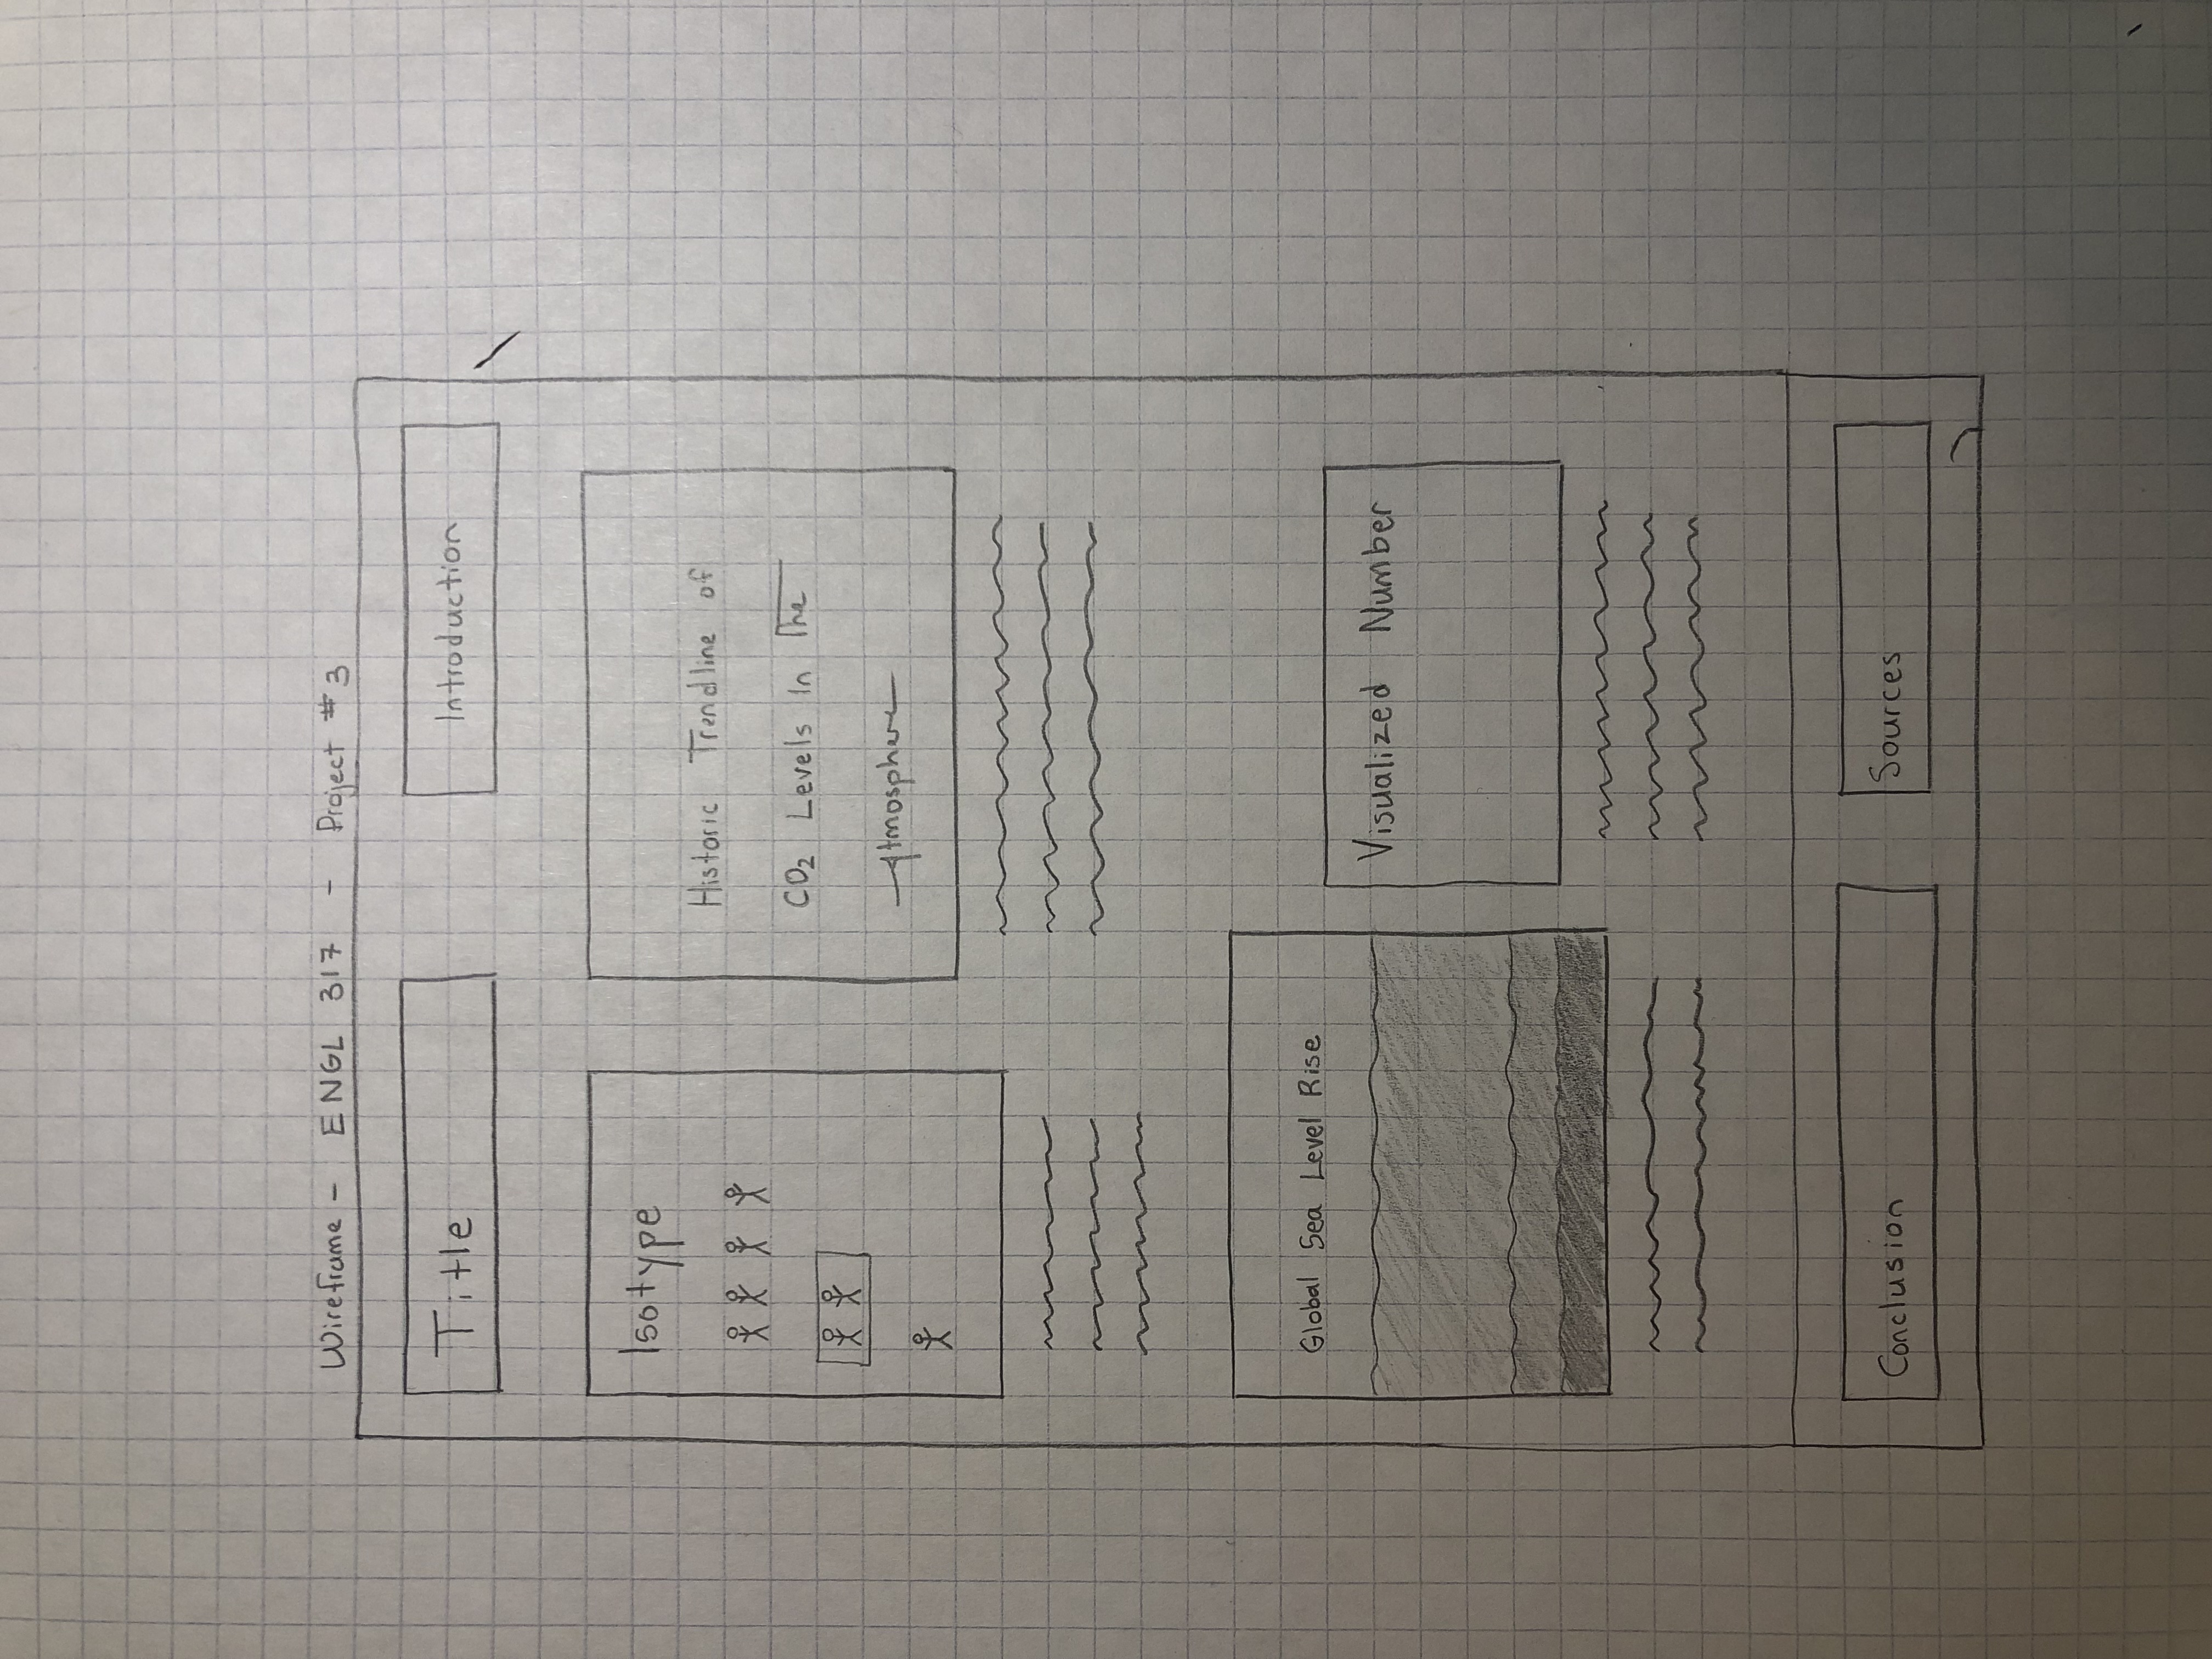 Wireframe - ENGL 317 - Project #3
Title
Introduction
Isotype
Historic Trendline of
CO₂ Levels In The
Atmosphere
Global Sea Level Rise
Visualized Number
Conclusion
Sources